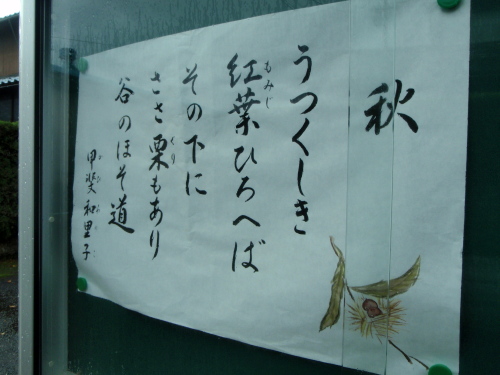 秋
うつくしき
紅葉ひろへば
その下に
ささ栗もあり
谷のほそ道
甲斐和里子